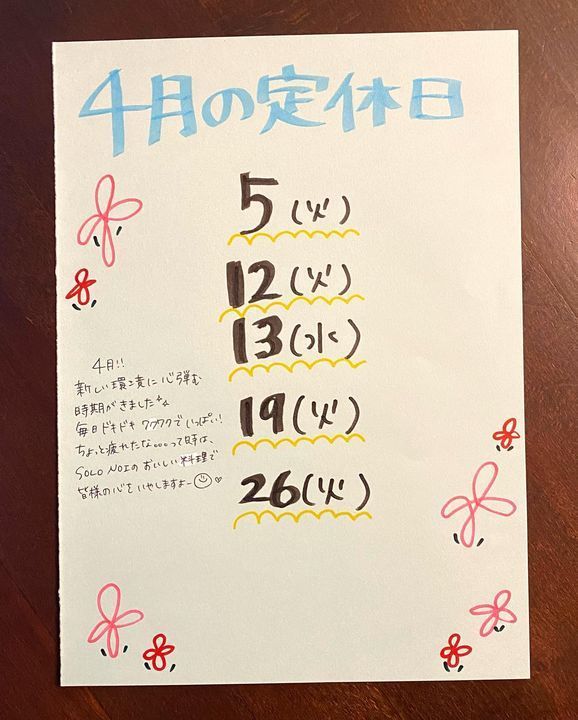 4月の定休日
5(火)
12(火)
13(水)
19(火)
26(火)
4月!!
新しい環境に心弾む
時期がきました
毎日ドキドキワクワクでいっぱい!
ちょっと疲れたな...って時は、
SOLO NOIのおいしい料理で
皆様の心をいやしますよー